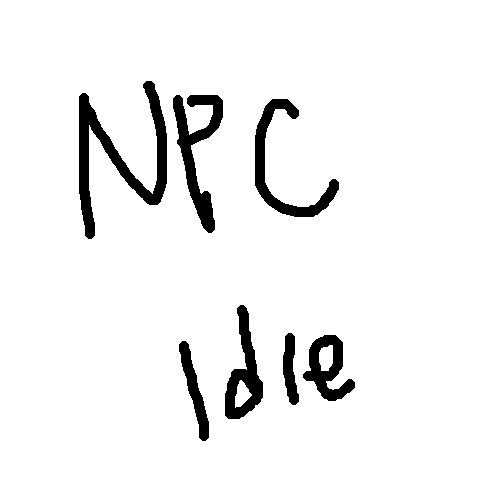 NPC
Idle